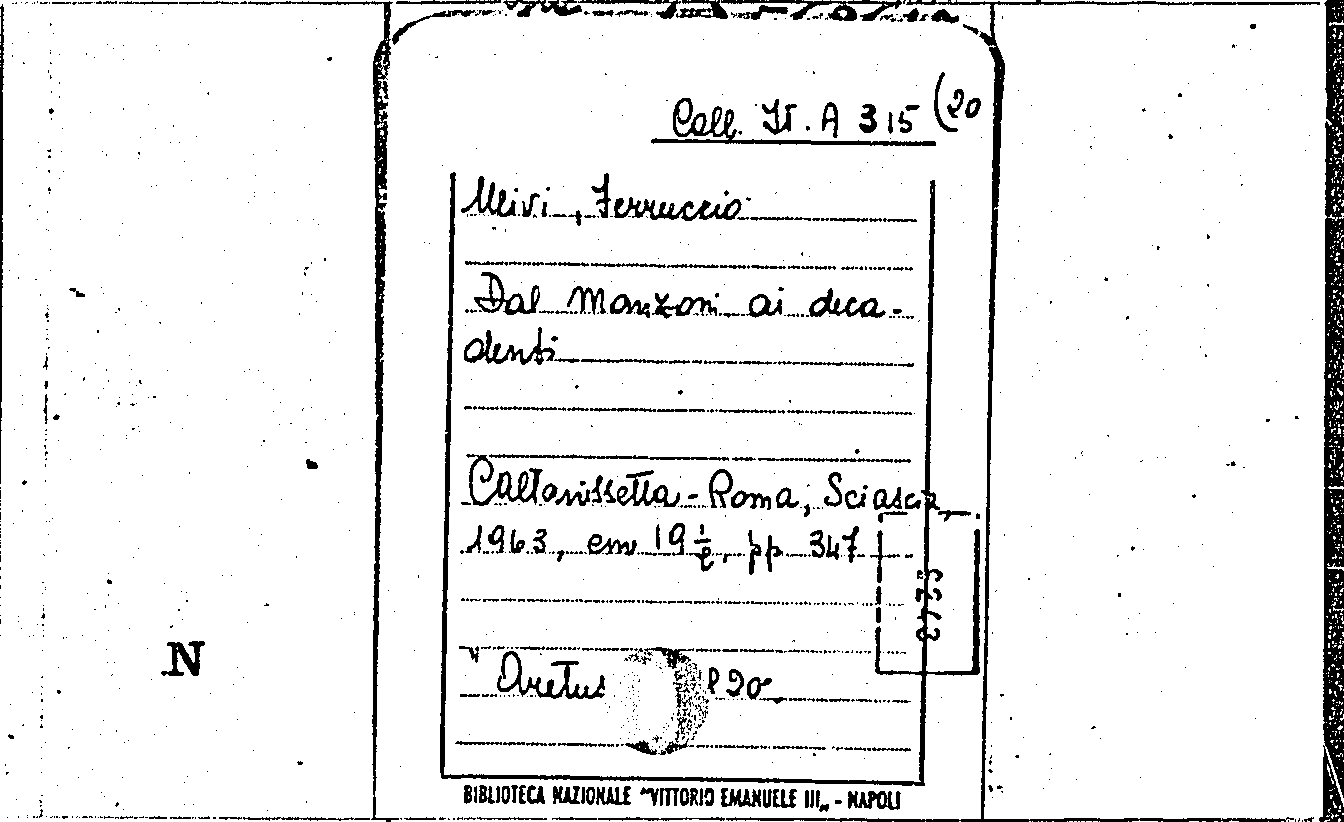 Coll. It. A 315 (20
Ulivi, Ferruccio
Dal Manzoni ai deca-
denti
Caltanissetta-Roma, Sciascia,
1963, cm 19 ½, pp 347
N
20
BIBLIOTECA NAZIONALE "VITTORIO EMANUELE III„ - NAPOLI